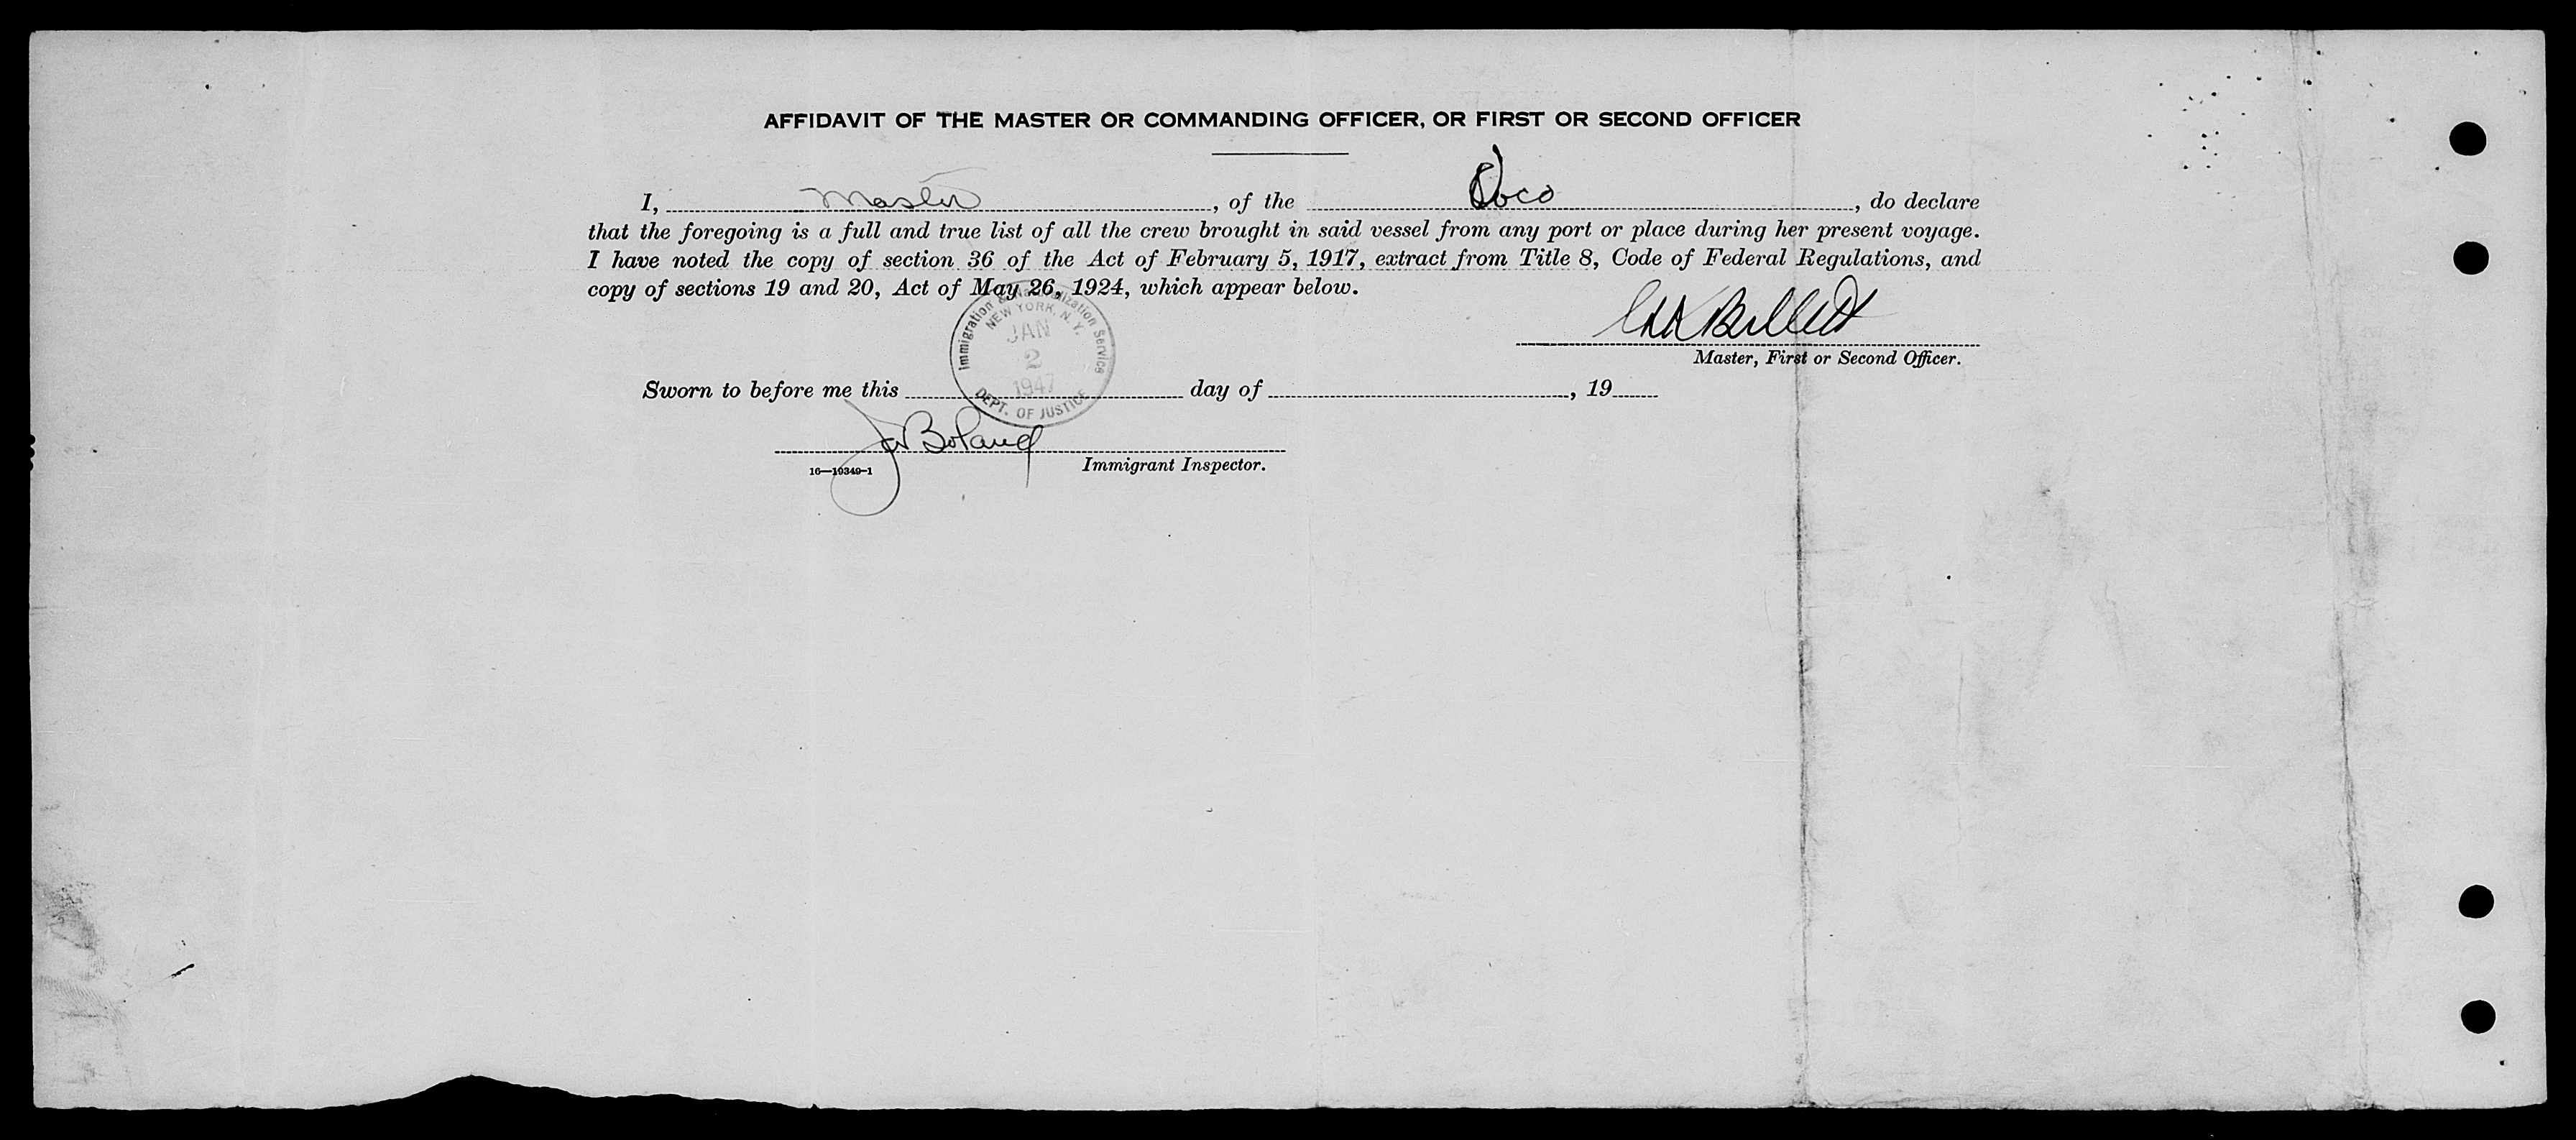 AFFIDAVIT OF THE MASTER OR COMMANDING OFFICER, OR FIRST OR SECOND OFFICER
I, Master, of the , do declare
that the foregoing is a full and true list of all the crew brought in said vessel from any port or place during her present voyage.
I have noted the copy of section 36 of the Act of February 5, 1917, extract from Title 8, Code of Federal Regulations, and
copy of sections 19 and 20, Act of May 26, 1924, which appear below.
Immigration & Naturalization Service
NEW YORK, N. Y.
JAN
2
1947
DEPT. OF JUSTICE
Master, First or Second Officer.
Sworn to before me this day of , 19
Boland
16—19349-1 Immigrant Inspector.